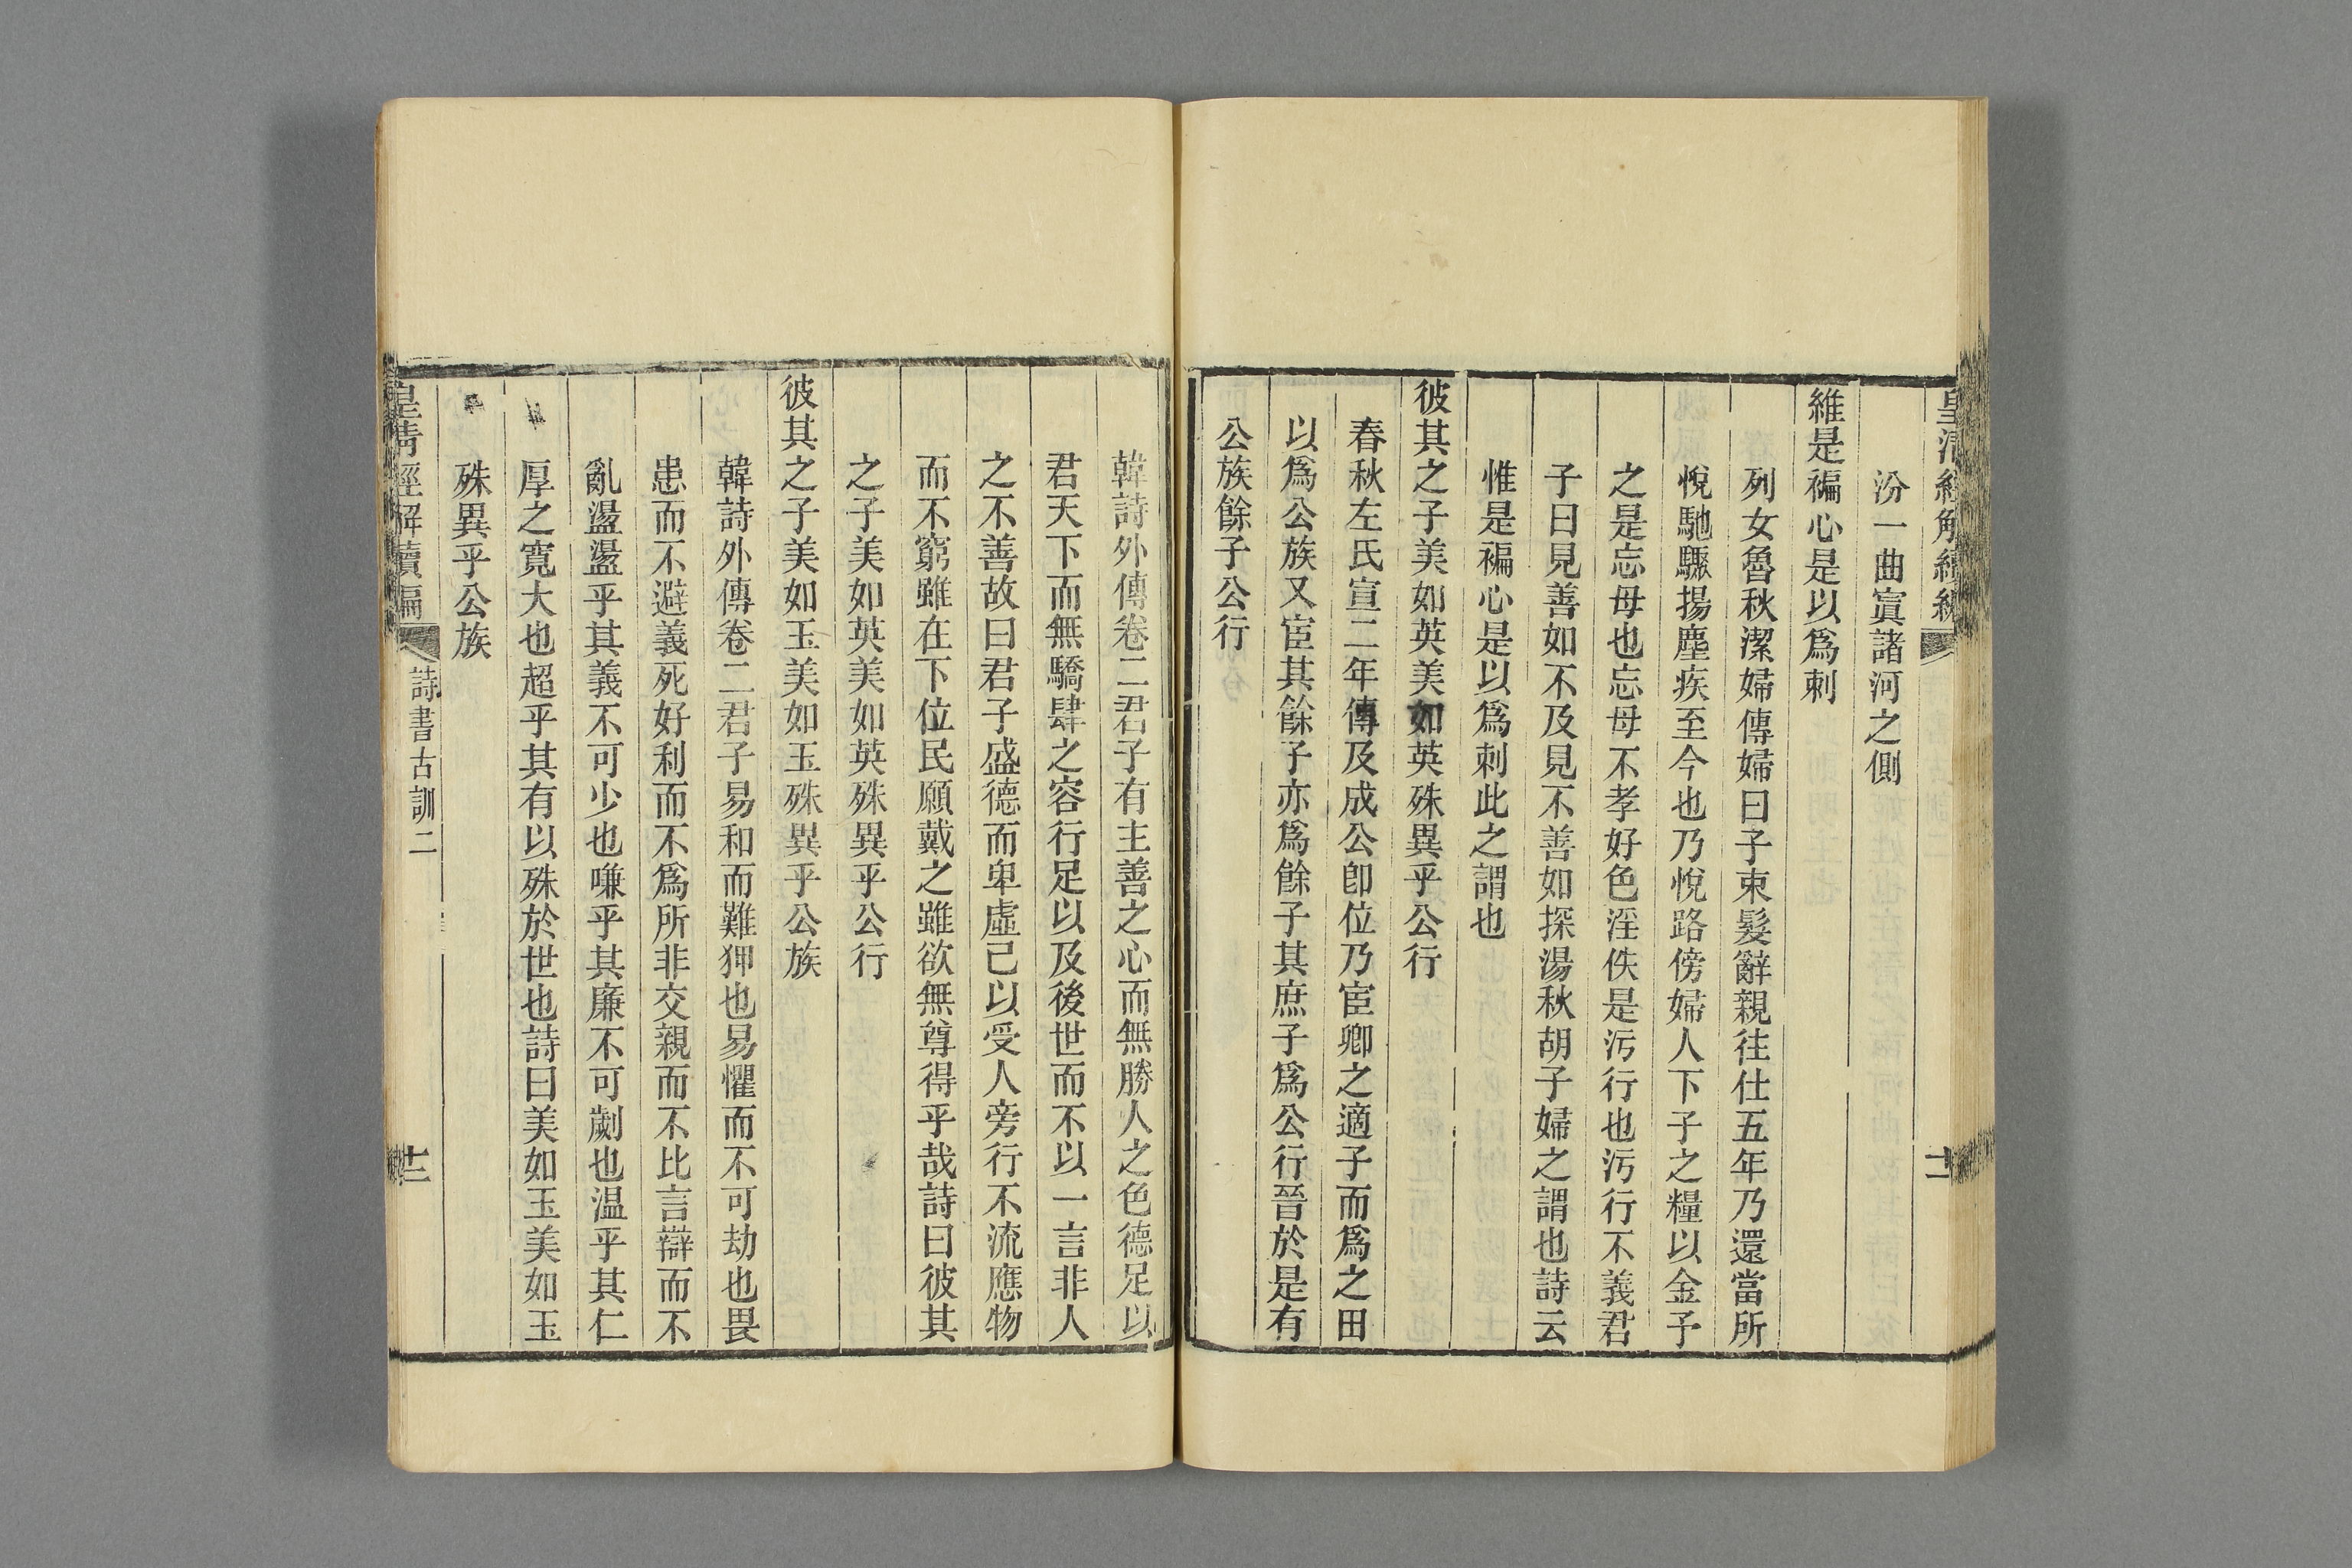 皇清經解續編
汾一曲寘諸河之側
維是褊心是以爲刺
列女魯秋潔婦傳婦曰子束髮辭親往仕五年乃還當所
悅馳驟揚塵疾至今也乃悅路傍婦人下子之糧以金予
之是忘母也忘母不孝好色淫佚是污行也污行不義君
子曰見善如不及見不善如探湯秋胡子婦之謂也詩云
惟是褊心是以爲刺此之謂也
彼其之子美如英美如英殊異乎公行
春秋左氏宣二年傳及成公卽位乃宦卿之適子而爲之田
以爲公族又宦其餘子亦爲餘子其庶子爲公行晉於是有
公族餘子公行
韓詩外傳卷二君子有主善之心而無勝人之色德足以
君天下而無驕肆之容行足以及後世而不以一言非人
之不善故曰君子盛德而卑虛己以受人旁行不流應物
而不窮雖在下位民願戴之雖欲無尊得乎哉詩曰彼其
之子美如英美如英殊異乎公行
彼其之子美如玉美如玉殊異乎公族
韓詩外傳卷二君子易和而難狎也易懼而不可劫也畏
患而不避義死好利而不爲所非交親而不比言辯而不
亂盪盪乎其義不可少也嗛乎其廉不可劌也温乎其仁
厚之寬大也超乎其有以殊於世也詩曰美如玉美如玉
殊異乎公族
皇清經解續編 詩書古訓二 十二